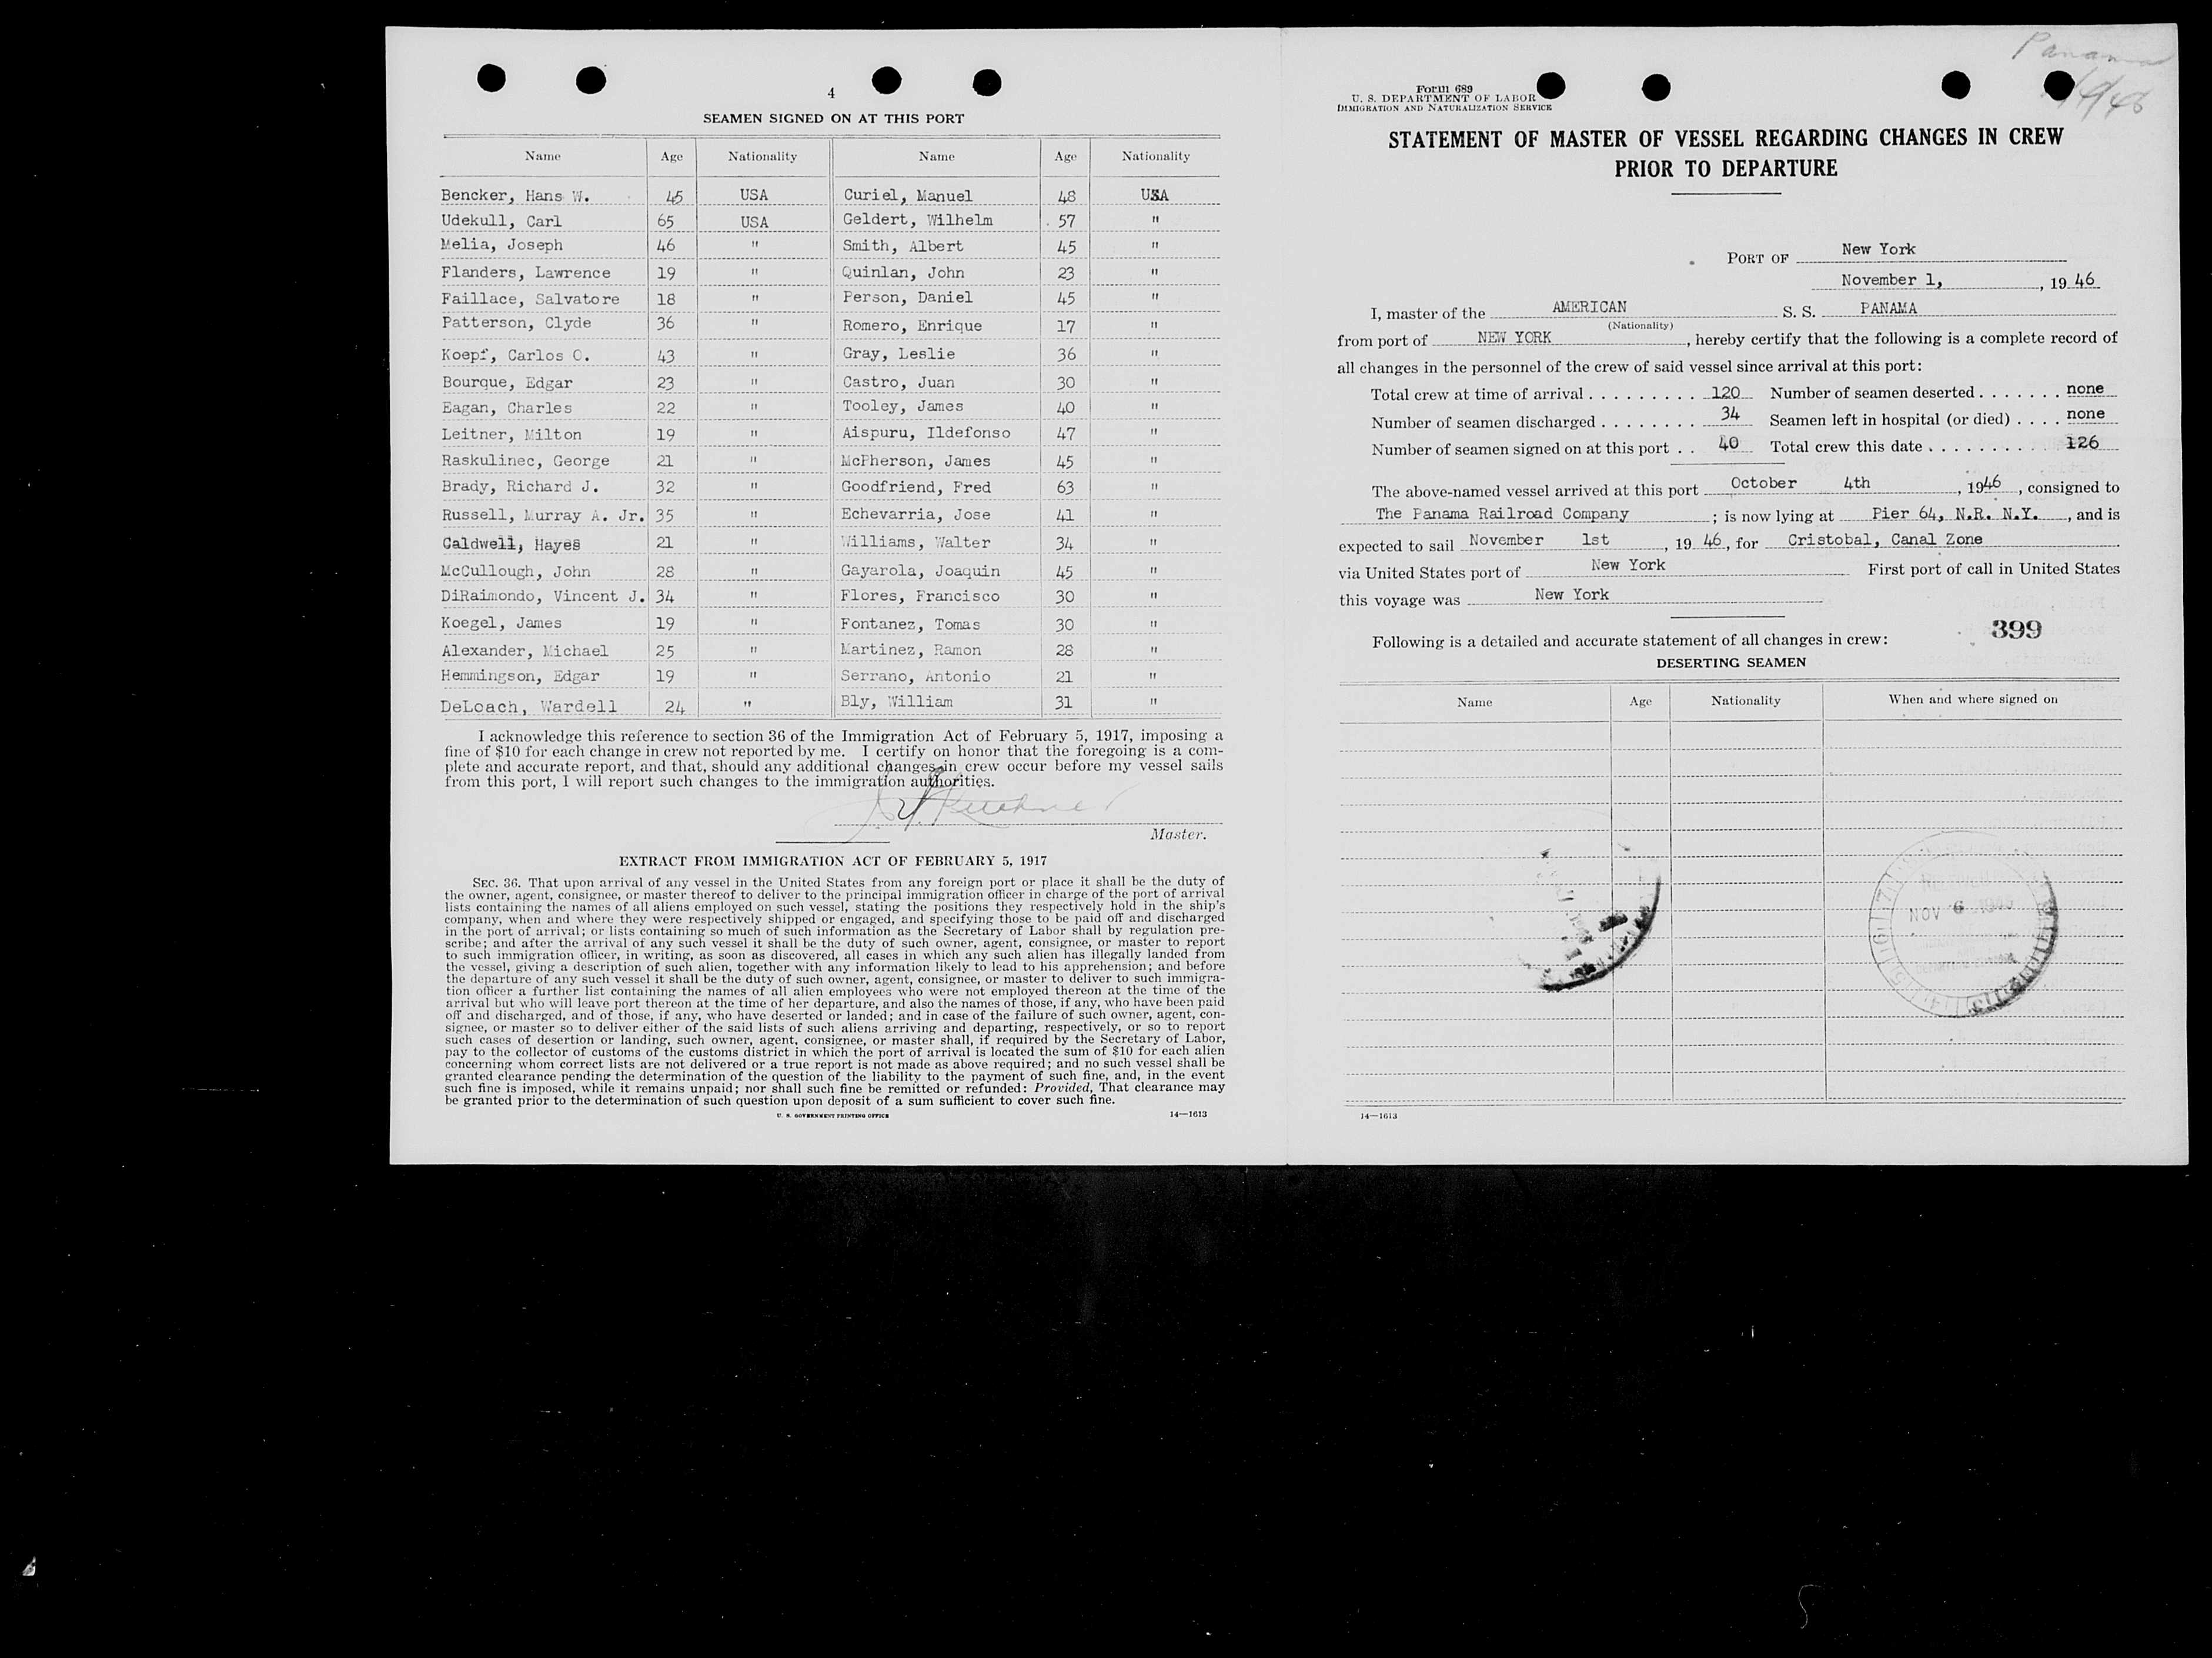 4
SEAMEN SIGNED ON AT THIS PORT
Name Age Nationality Name Age Nationality
Bencker, Hans W. 45 USA Curiel, Manuel 48 USA
Udekull, Carl 65 USA Geldert, Wilhelm 57 "
Melia, Joseph 46 " Smith, Albert 45 "
Flanders, Lawrence 19 " Quinlan, John 23 "
Faillace, Salvatore 18 " Person, Daniel 45 "
Patterson, Clyde 36 " Romero, Enrique 17 "
Koepf, Carlos O. 43 " Gray, Leslie 36 "
Bourque, Edgar 23 " Castro, Juan 30 "
Eagan, Charles 22 " Tooley, James 40 "
Leitner, Milton 19 " Aispuru, Ildefonso 47 "
Raskulinec, George 21 " McPherson, James 45 "
Brady, Richard J. 32 " Goodfriend, Fred 63 "
Russell, Murray A. Jr. 35 " Echevarria, Jose 41 "
Caldwell, Hayes 21 " Williams, Walter 34 "
McCullough, John 28 " Gayarola, Joaquin 45 "
DiRaimondo, Vincent J. 34 " Flores, Francisco 30 "
Koegel, James 19 " Fontanez, Tomas 30 "
Alexander, Michael 25 " Martinez, Ramon 28 "
Hemmingson, Edgar 19 " Serrano, Antonio 21 "
DeLoach, Wardell 24 " Bly, William 31 "
I acknowledge this reference to section 36 of the Immigration Act of February 5, 1917, imposing a
fine of $10 for each change in crew not reported by me. I certify on honor that the foregoing is a com-
plete and accurate report, and that, should any additional changes in crew occur before my vessel sails
from this port, I will report such changes to the immigration authorities.
Master.
EXTRACT FROM IMMIGRATION ACT OF FEBRUARY 5, 1917
SEC. 36. That upon arrival of any vessel in the United States from any foreign port or place it shall be the duty of
the owner, agent, consignee, or master thereof to deliver to the principal immigration officer in charge of the port of arrival
lists containing the names of all aliens employed on such vessel, stating the positions they respectively hold in the ship's
company, when and where they were respectively shipped or engaged, and specifying those to be paid off and discharged
in the port of arrival; or lists containing so much of such information as the Secretary of Labor shall by regulation pre-
scribe; and after the arrival of any such vessel it shall be the duty of such owner, agent, consignee, or master to report
to such immigration officer, in writing, as soon as discovered, all cases in which any such alien has illegally landed from
the vessel, giving a description of such alien, together with any information likely to lead to his apprehension; and before
the departure of any such vessel it shall be the duty of such owner, agent, consignee, or master to deliver to such immigra-
tion officer a further list containing the names of all alien employees who were not employed thereon at the time of the
arrival but who will leave port thereon at the time of her departure, and also the names of those, if any, who have been paid
off and discharged, and of those, if any, who have deserted or landed; and in case of the failure of such owner, agent, con-
signee, or master so to deliver either of the said lists of such aliens arriving and departing, respectively, or so to report
such cases of desertion or landing, such owner, agent, consignee, or master shall, if required by the Secretary of Labor,
pay to the collector of customs of the customs district in which the port of arrival is located the sum of $10 for each alien
concerning whom correct lists are not delivered or a true report is not made as above required; and no such vessel shall be
granted clearance pending the determination of the question of the liability to the payment of such fine, and, in the event
such fine is imposed, while it remains unpaid; nor shall such fine be remitted or refunded: Provided, That clearance may
be granted prior to the determination of such question upon deposit of a sum sufficient to cover such fine.
U. S. GOVERNMENT PRINTING OFFICE 14—1613
Panama
Form 689
U. S. DEPARTMENT OF LABOR
IMMIGRATION AND NATURALIZATION SERVICE
STATEMENT OF MASTER OF VESSEL REGARDING CHANGES IN CREW
PRIOR TO DEPARTURE
PORT OF New York
November 1, , 19 46
I, master of the AMERICAN S. S. PANAMA
(Nationality)
from port of NEW YORK , hereby certify that the following is a complete record of
all changes in the personnel of the crew of said vessel since arrival at this port:
Total crew at time of arrival . . . . . . . . . 120 Number of seamen deserted . . . . . . . none
Number of seamen discharged . . . . . . . . 34 Seamen left in hospital (or died) . . . . none
Number of seamen signed on at this port . . 40 Total crew this date . . . . . . . . . . . 126
The above-named vessel arrived at this port October 4th , 1946 , consigned to
The Panama Railroad Company ; is now lying at Pier 64, N.R. N.Y. , and is
expected to sail November 1st , 19 46 , for Cristobal, Canal Zone
via United States port of New York First port of call in United States
this voyage was New York
399
Following is a detailed and accurate statement of all changes in crew:
DESERTING SEAMEN
Name Age Nationality When and where signed on
NOV 6
14—1613